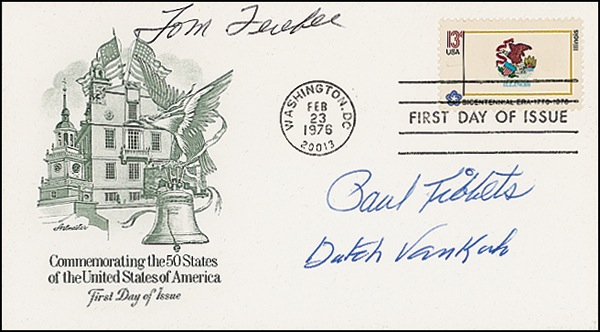 Tom Ferebee
13¢
USA
Illinois
ILLINOIS
BICENTENNIAL ERA 1776-1976
WASHINGTON, DC
FEB
23
1976
20013
FIRST DAY OF ISSUE
Paul Tibbets
Dutch VanKirk
Artmaster
Commemorating the 50 States
of the United States of America
First Day of Issue